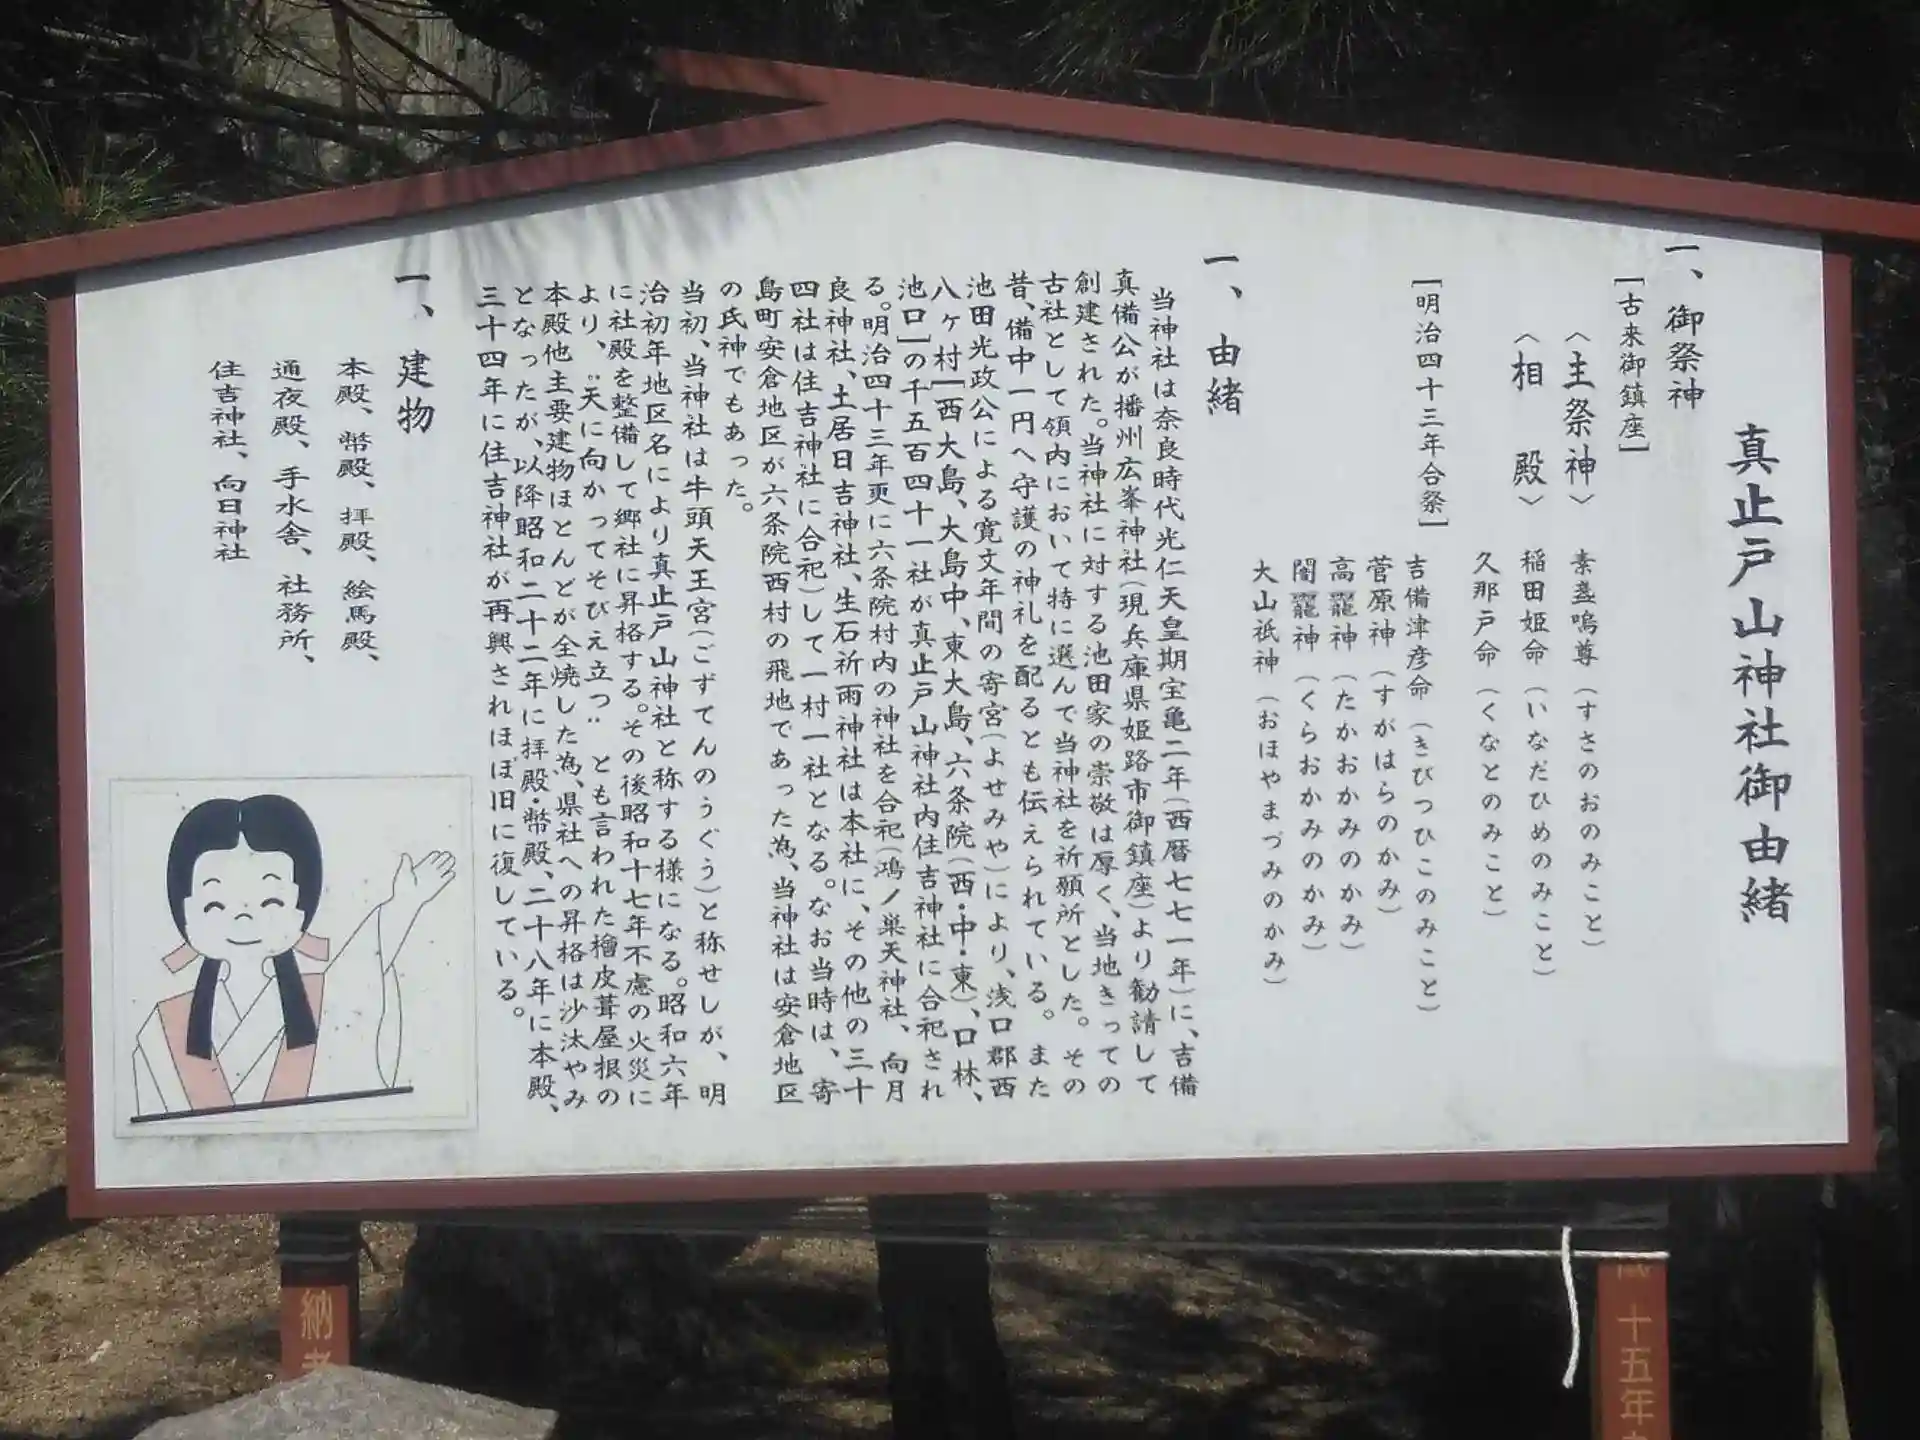 真止戸山神社御由緒
一、御祭神
[古来御鎮座]
〈主祭神〉 素盞嗚尊(すさのおのみこと)
〈相殿〉 稲田姫命(いなだひめのみこと)
久那戸命(くなとのみこと)
[明治四十三年合祭]
吉備津彦命(きびつひこのみこと)
菅原神(すがはらのかみ)
高龗神(たかおかみのかみ)
闇龗神(くらおかみのかみ)
大山祇神(おほやまづみのかみ)
一、由緒
当神社は奈良時代光仁天皇期宝亀二年(西暦七七一年)に、吉備
真備公が播州広峯神社(現兵庫県姫路市御鎮座)より勧請して
創建された。当神社に対する池田家の崇敬は厚く、当地きっての
古社として領内において特に選んで当神社を祈願所とした。その
昔、備中一円へ守護の神札を配るとも伝えられている。また
池田光政公による寛文年間の寄宮(よせみや)により、浅口郡西
八ヶ村[西大島、大島中、東大島、六条院(西・中・東)、口林、
池口]の千五百四十一社が真止戸山神社内住吉神社に合祀され
る。明治四十三年更に六条院村内の神社を合祀(鴻ノ巣天神社、向月
良神社、土居日吉神社、生石祈雨神社は本社に、その他の三十
四社は住吉神社に合祀)して一村一社となる。なお当時は、寄
島町安倉地区が六条院西村の飛地であった為、当神社は安倉地区
の氏神でもあった。
当初、当神社は牛頭天王宮(ごずてんのうぐう)と称せしが、明
治初年地区名により真止戸山神社と称する様になる。昭和六年
に社殿を整備して郷社に昇格する。その後昭和十七年不慮の火災に
より、〝天に向かってそびえ立つ〟とも言われた檜皮葺屋根の
本殿他主要建物ほとんどが全焼した為、県社への昇格は沙汰やみ
となったが、以降昭和二十二年に拝殿・幣殿、二十八年に本殿、
三十四年に住吉神社が再興されほぼ旧に復している。
一、建物
本殿、幣殿、拝殿、絵馬殿、
通夜殿、手水舎、社務所、
住吉神社、向日神社
納
十五年